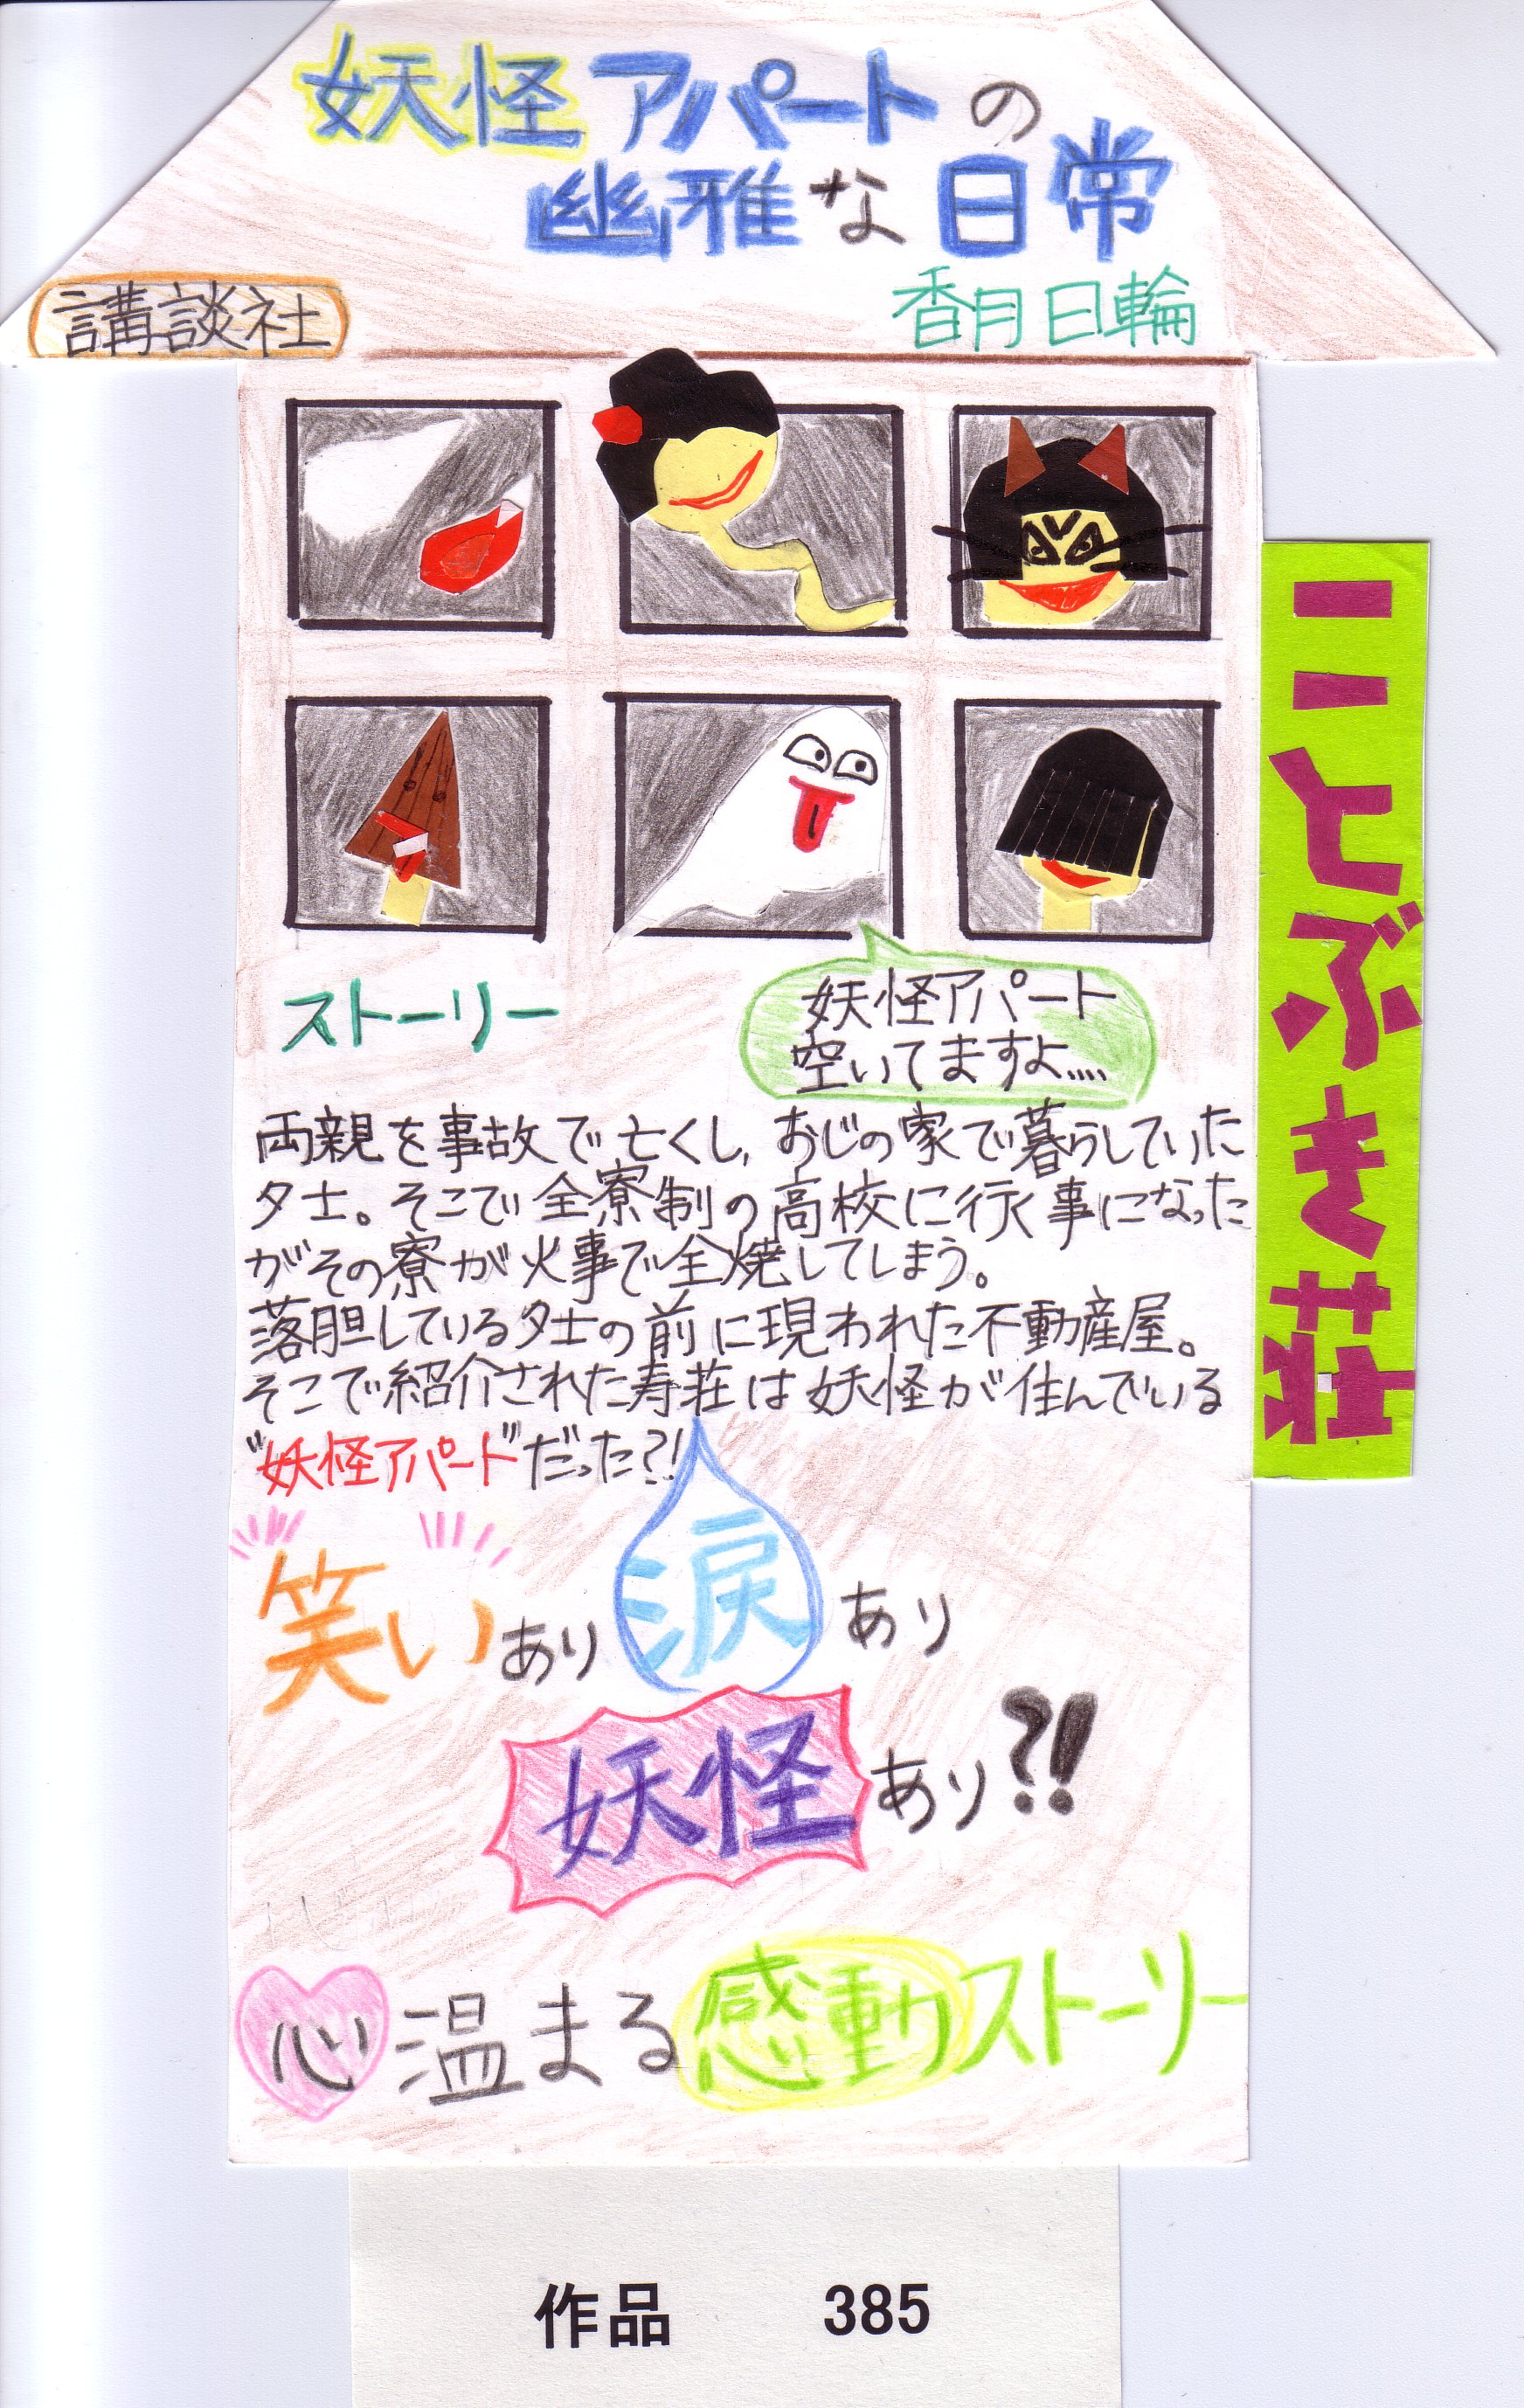 妖怪アパートの
幽雅な日常
講談社
香月日輪
ことぶき荘
ストーリー
妖怪アパート
空いてますよ....
両親を事故で亡くし、おじの家で暮らしていた
夕士。そこで全寮制の高校に行く事になった
がその寮が火事で全焼してしまう。
落胆している夕士の前に現われた不動産屋。
そこで紹介された寿荘は妖怪が住んでいる
"妖怪アパート"だった?!
笑いあり涙あり
妖怪あり?!
心温まる感動ストーリー
作品 385